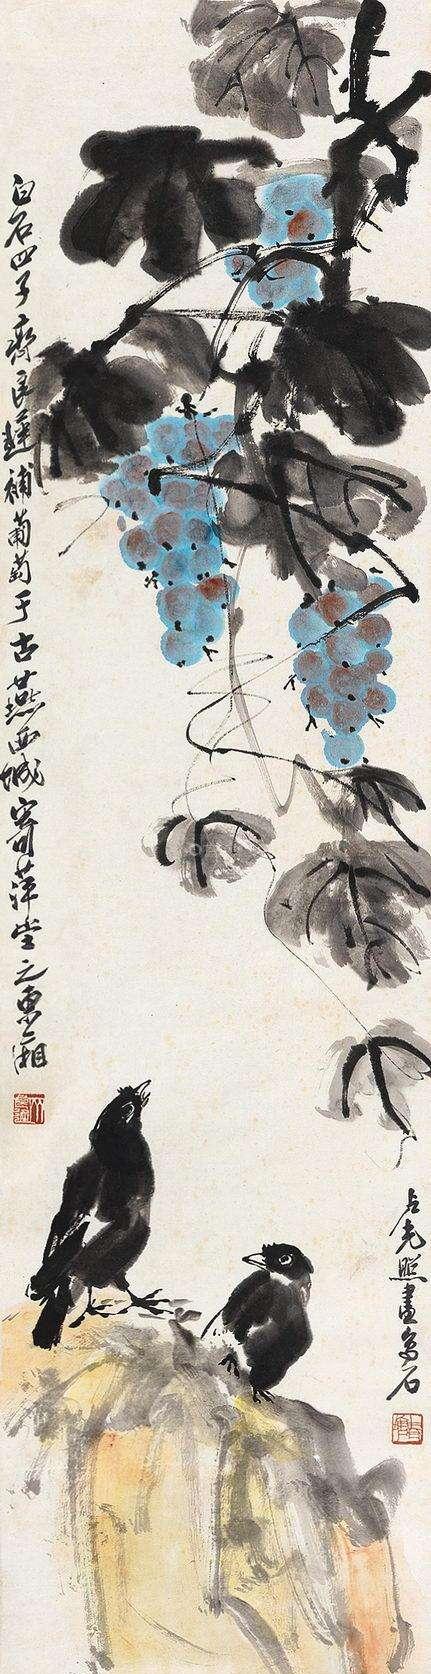 卢光照畫鳥石
白石四子齊良遲補葡萄于古燕西城寄萍堂之東廂